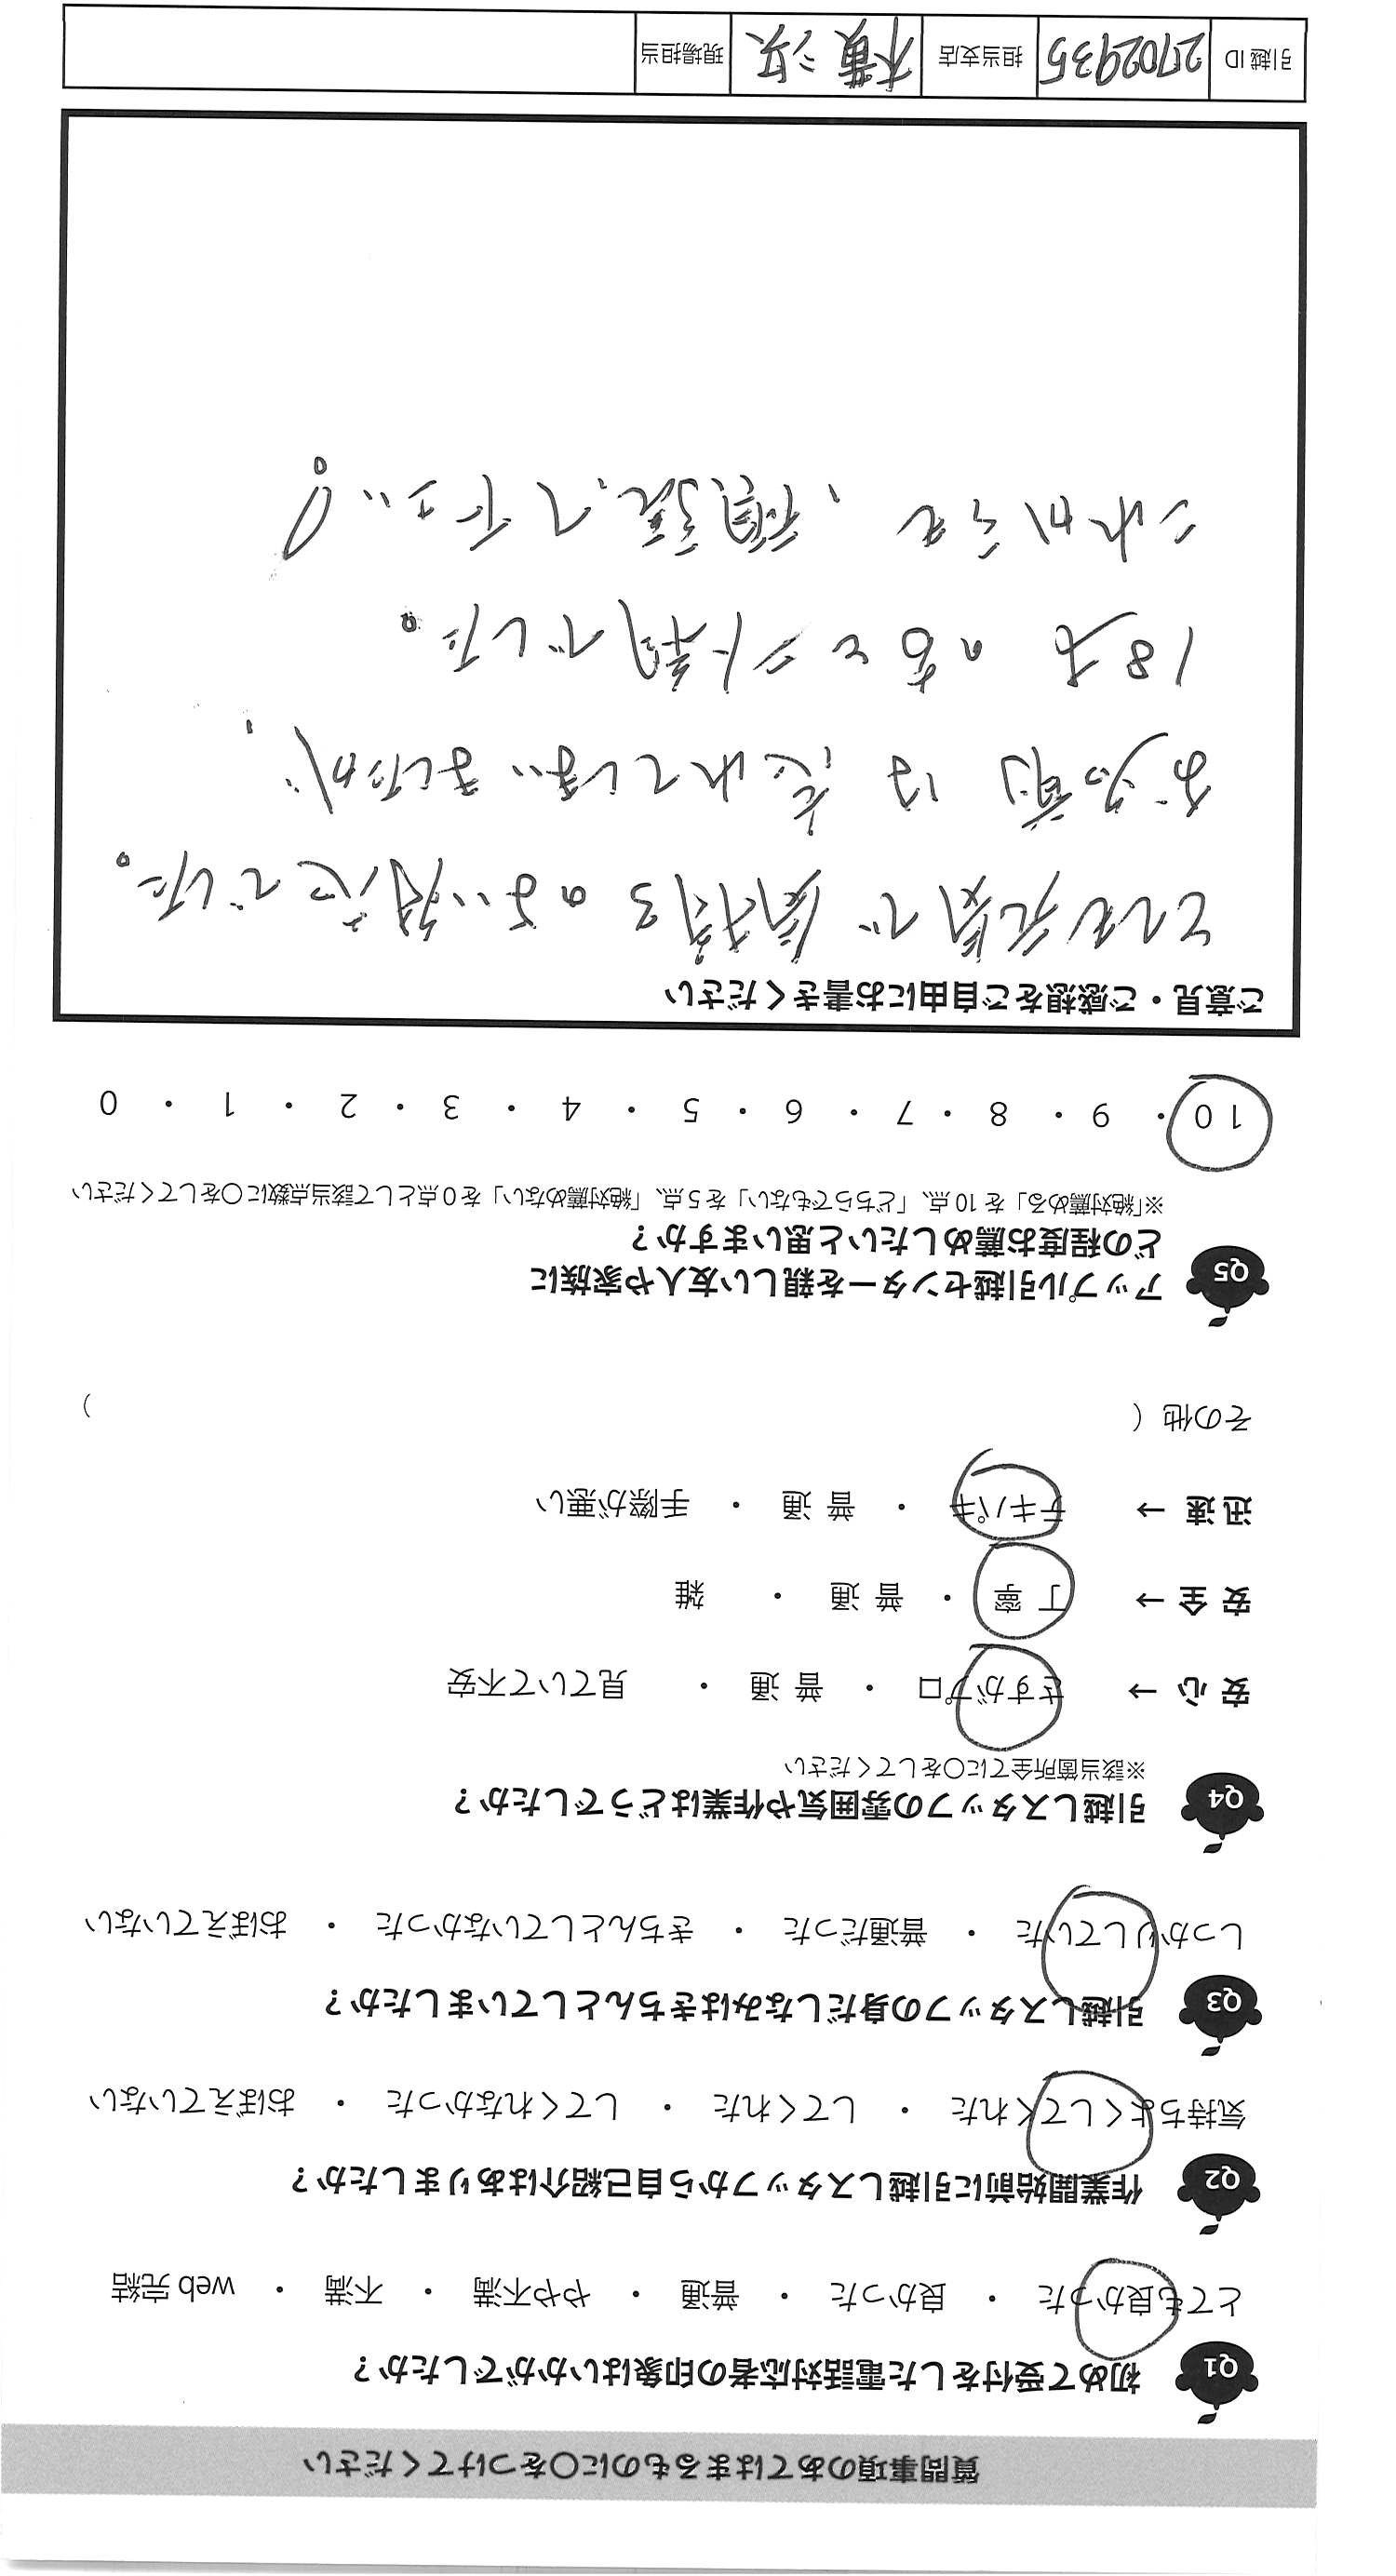 質問事項のあてはまるものに〇をつけてください
Q1 初めて受付をした電話対応者の印象はいかがでしたか？
とても良かった ・ 良かった ・ 普通 ・ やや不満 ・ 不満 ・ web 完結
Q2 作業開始前に引越しスタッフから自己紹介はありましたか？
気持ちよくしてくれた ・ してくれた ・ してくれなかった ・ おぼえていない
Q3 引越しスタッフの身だしなみはきちんとしていましたか？
しっかりしていた ・ 普通だった ・ きちんとしていなかった ・ おぼえていない
Q4 引越しスタッフの雰囲気や作業はどうでしたか？
※該当箇所全てに〇をしてください
安 心 → さすがプロ ・ 普 通 ・ 見ていて不安
安 全 → 丁 寧 ・ 普 通 ・ 雑
迅 速 → テキパキ ・ 普 通 ・ 手際が悪い
その他（ ）
Q5 アップル引越センターを親しい友人や家族に
どの程度お薦めしたいと思いますか？
※「絶対薦める」を 10 点、「どちらでもない」を 5 点、「絶対薦めない」を 0 点として該当点数に〇をしてください
10 ・ 9 ・ 8 ・ 7 ・ 6 ・ 5 ・ 4 ・ 3 ・ 2 ・ 1 ・ 0
ご意見・ご感想をご自由にお書きください
とても元気で気持ちのよい対応でした。
お名前は忘れてしまいましたが、
18才の
でした。
これからも、頑張って下さい!。
引越 ID 2702935 担当支店 横浜 現場担当